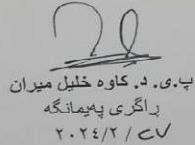 پ.ی. د. کاوە خلیل میران
ڕاگری پەیمانگە
٢٠٢٤/٢/٢٧